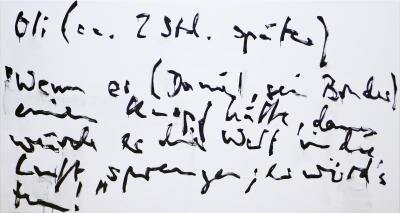 Oli (ca. 2 Std. später)
"Wenn er (Daniel, sein Bruder)
einen Knopf hätte, dann
würde er die Welt in die
Luft sprengen; er würd's
tun."